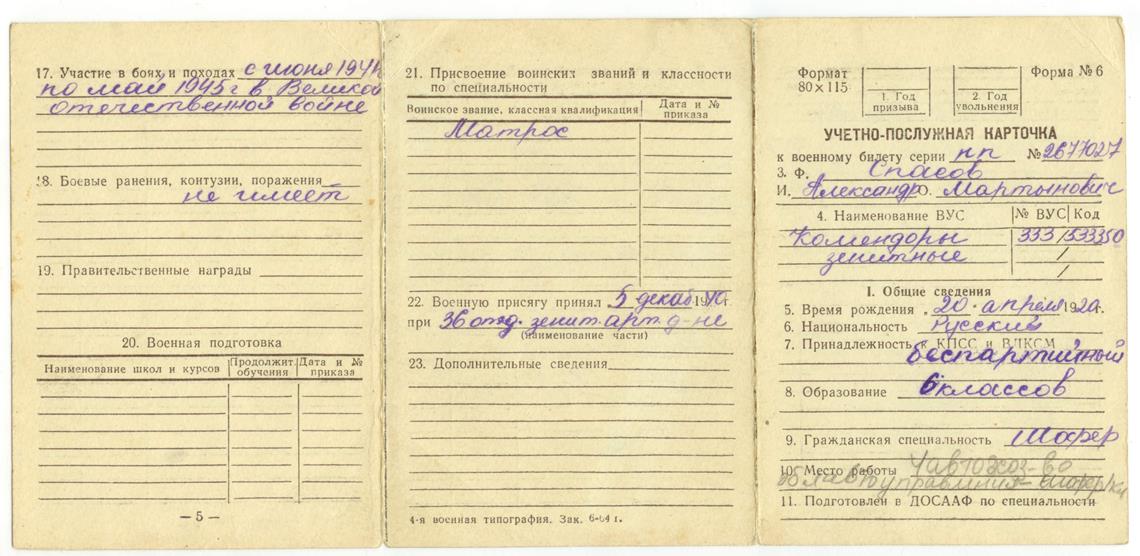 17. Участие в боях и походах с июня 1941г
по май 1945 г в Великой
отечественной войне
18. Боевые ранения, контузии, поражения
не имеет
19. Правительственные награды
20. Военная подготовка
Наименование школ и курсов Продолжит. обучения Дата и № приказа
— 5 —
21. Присвоение воинских званий и классности
по специальности
Воинское звание, классная квалификация Дата и № приказа
Матрос
22. Военную присягу принял 5 декаб 1940г.
при 36 отд. зенит. арт. д-не
(наименование части)
23. Дополнительные сведения
4-я военная типография. Зак. 6-64 г.
Формат
80×115
1. Год
призыва
2. Год
увольнения
Форма № 6
УЧЕТНО-ПОСЛУЖНАЯ КАРТОЧКА
к военному билету серии нп № 2677027
3. Ф. Спасов
И. Александр О. Мартынович
4. Наименование ВУС № ВУС Код
Комендоры 333 / 533350
зенитные /
/
I. Общие сведения
5. Время рождения 20 апреля 1920г.
6. Национальность Русский
7. Принадлежность к КПСС и ВЛКСМ
беспартийный
8. Образование 6 классов
9. Гражданская специальность Шофер
10. Место работы Автохоз-во
управления шофер
11. Подготовлен в ДОСААФ по специальности